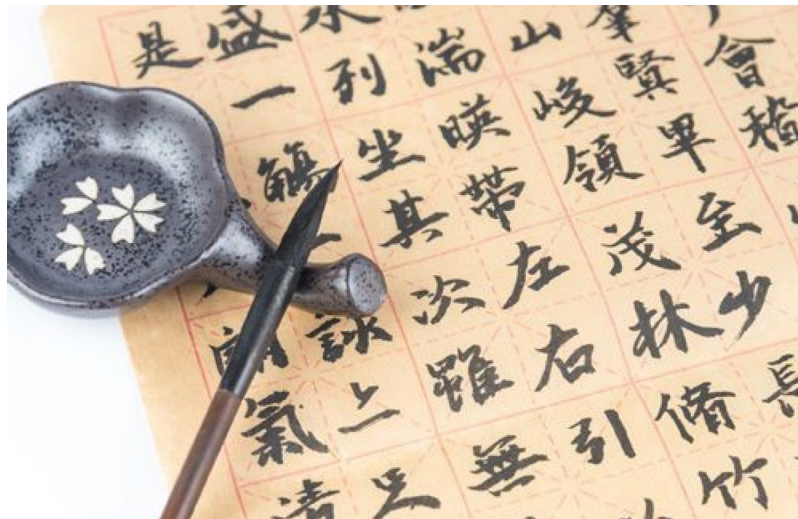 會稽
羣賢畢至少長
山峻領茂林脩竹
湍暎帶左右引
列坐其次雖無
盛一觴一詠亦足
是朗氣清